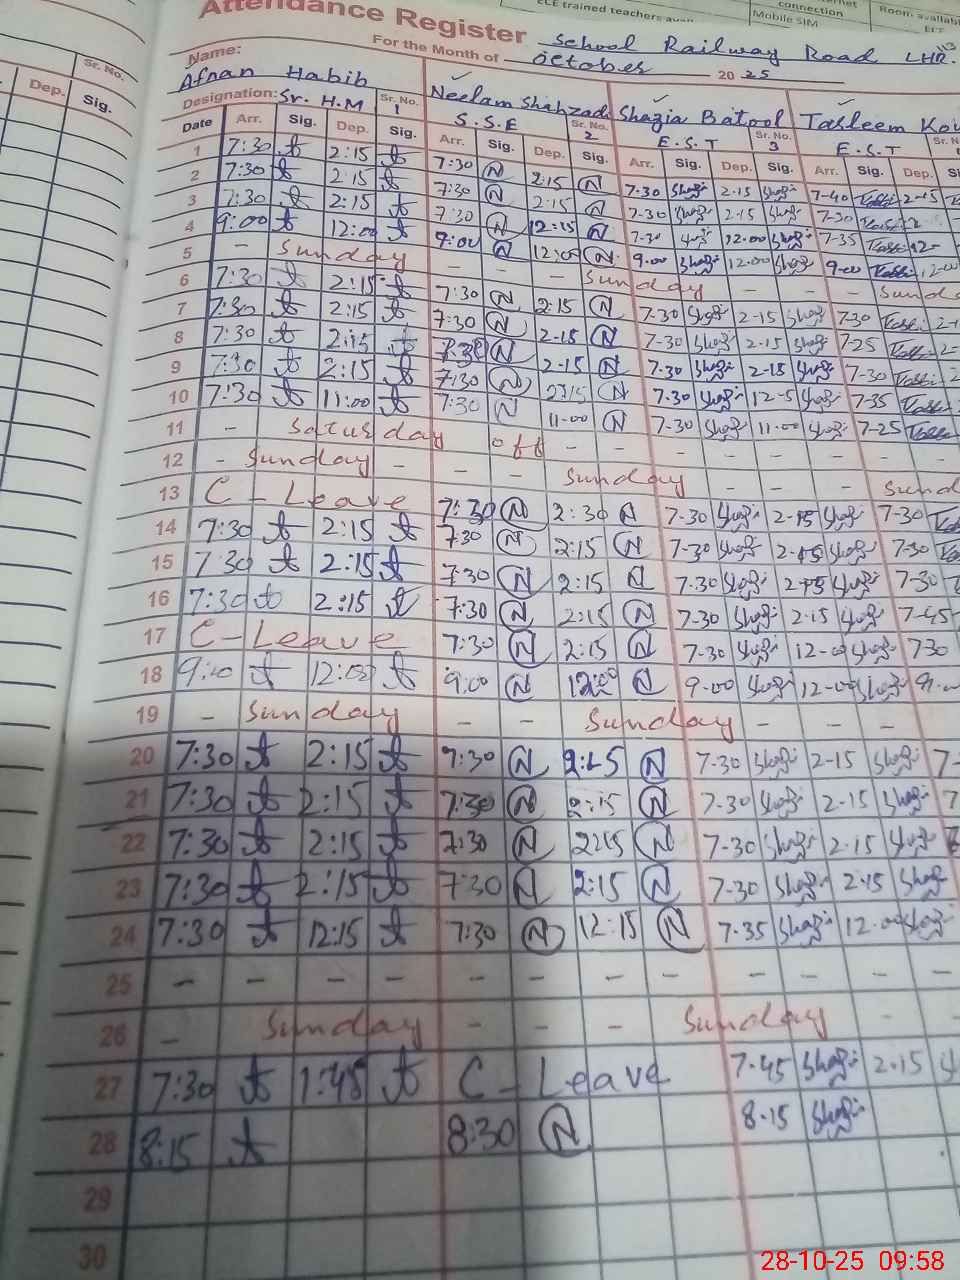 ECE trained teachers
connection
Mobile SIM
Room available
ECE
Attendance Register School Railway Road LHR.
For the Month of October 2025
Name:
Afnan Habib Neelam Shahzadi Shazia Batool Tasleem
Designation: Sr. H.M Sr. No. 1 S.S.E Sr. No. 2 E.S.T Sr. No. 3 E.S.T
Sr. No.
Dep. Sig.
Date Arr. Sig. Dep. Sig. Arr. Sig. Dep. Sig. Arr. Sig. Dep. Sig. Arr. Sig. Dep.
1 7:30 2:15 7:30 N 2:15 N 7-30 Shazi 2-15 Shazi 7-40 2-15
2 7:30 2:15 7:30 N 2:15 N 7-30 Shazi 2-15 Shazi 7-30
3 7:30 2:15 7:30 N 12:15 N 7-30 Shazi 12-00 Shazi 7-35
4 9:00 12:00 9:00 N 12:00 N 9-00 Shazi 12-00 Shazi 9-00 12-00
5 - Sunday - - - Sunday - - Sunday
6 7:30 2:15 7:30 N 2:15 N 7-30 Shazi 2-15 Shazi 7-30
7 7:30 2:15 7:30 N 2-15 N 7-30 Shazi 2-15 Shazi 7-25
8 7:30 2:15 7:30 N 2-15 N 7-30 Shazi 2-15 Shazi 7-30
9 7:30 2:15 7:30 N 2:15 N 7-30 Shazi Shazi 7-35
10 7:30 11:00 7:30 N 11-00 N 7-30 Shazi 11-00 Shazi 7-25
11 - Saturday off - - - - - - - -
12 - Sunday - - - Sunday - - Sund
13 C-Leave 7:30 N 2:30 N 7-30 Shazi 2-15 Shazi 7-30
14 7:30 2:15 7:30 N 2:15 N 7-30 Shazi 2-15 Shazi 7-30
15 7:30 2:15 7:30 N 2:15 N 7-30 Shazi 2-15 Shazi 7-30
16 7:30 2:15 7:30 N 2:15 N 7-30 Shazi 2-15 Shazi 7-45
17 C-Leave 7:30 N 2:15 N 7-30 Shazi 12-00 Shazi 7-30
18 9:00 12:00 9:00 N 12:00 N 9-00 Shazi 12-00 Shazi
19 - Sunday - - Sunday - - -
20 7:30 2:15 7:30 N 2:15 N 7-30 Shazi 2-15 Shazi
21 7:30 2:15 7:30 N 2:15 N 7-30 Shazi 2-15 Shazi
22 7:30 2:15 7:30 N 2:15 N 7-30 Shazi 2-15 Shazi
23 7:30 2:15 7:30 N 2:15 N 7-30 Shazi 2-15 Shazi
24 7:30 12:15 7:30 N 12:15 N 7-35 Shazi 12-00 Shazi
25 - - - - - - - - - - - -
26 - Sunday - - - Sunday - -
27 7:30 1:45 C-Leave 7-45 Shazi 2-15
28 8:15 8:30 N 8-15 Shazi
29
30
28-10-25 09:58